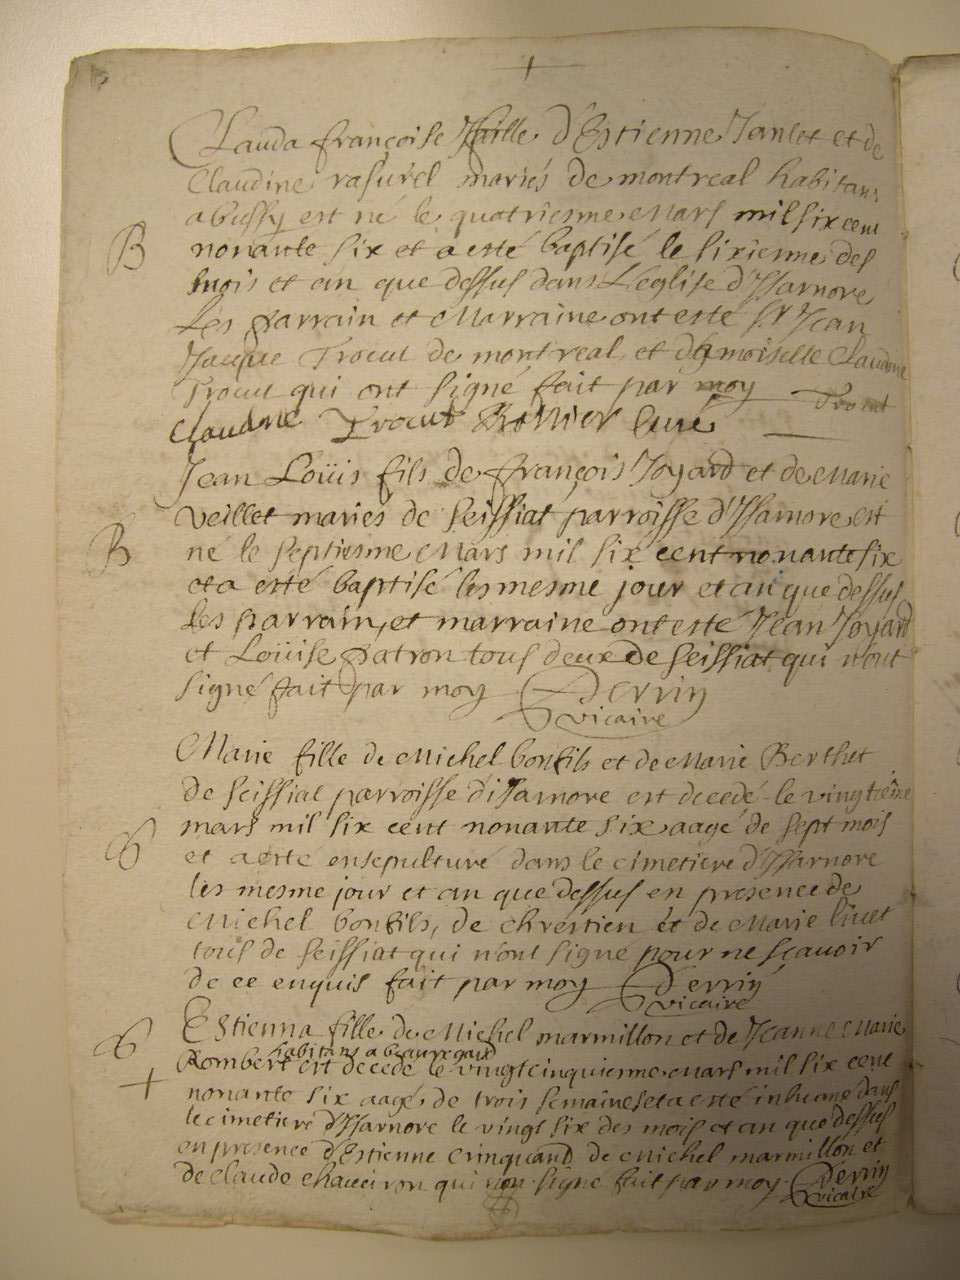 Clauda françoise fille d'Estienne Janlet et de
Claudine rasurel mariés de montreal habitans
a bussy est né le quatriesme Mars mil six cent
B nonante six et a esté baptisé le sixiesme des
mois et an que dessus dans L'eglise d'Yssarnore
Les parrain et Marraine ont esté Sr Jean
Jacque Trocut de montreal et damoiselle Claudine
Trocut qui ont signé fait par moy Trocut
Claudine Trocut curé
Jean Loüis fils de françois Joyard et de Marie
veillet mariés de seissiat parroisse d'Yssarnore est
B né le septiesme Mars mil six cent nonante six
et a esté baptisé les mesme jour et an que dessus
Les parrain, et marraine ont esté Jean Joyard
et Loüise patron tous deux de seissiat qui n'ont
signé fait par moy Perrin
vicaire
Marie fille de Michel bonfils et de Marie Berthet
de seissiat parroisse d'isarnore est decedé le
mars mil six cent nonante six aagé de sept mois
S et a esté ensepulturé dans le cimetiere d'Yssarnore
les mesme jour et an que dessus en presence de
Michel bonfils, de chrestien et de Marie
tous de seissiat qui n'ont signé pour ne scavoir
de ce enquis fait par moy Perrin
vicaire
S Estienna fille de Michel marmillon et de Jeanne Marie
habitans a beauregard
Rombert est decedé le vingtcinquiesme Mars mil six cent
nonante six aagé de trois semaines et a esté inhumé dans
le cimetiere d'Yssarnore le vingt six des mois et an que dessus
en presence d'Estienne de Michel marmillon et
de Claude qui non signé fait par moy Perrin
vicaire